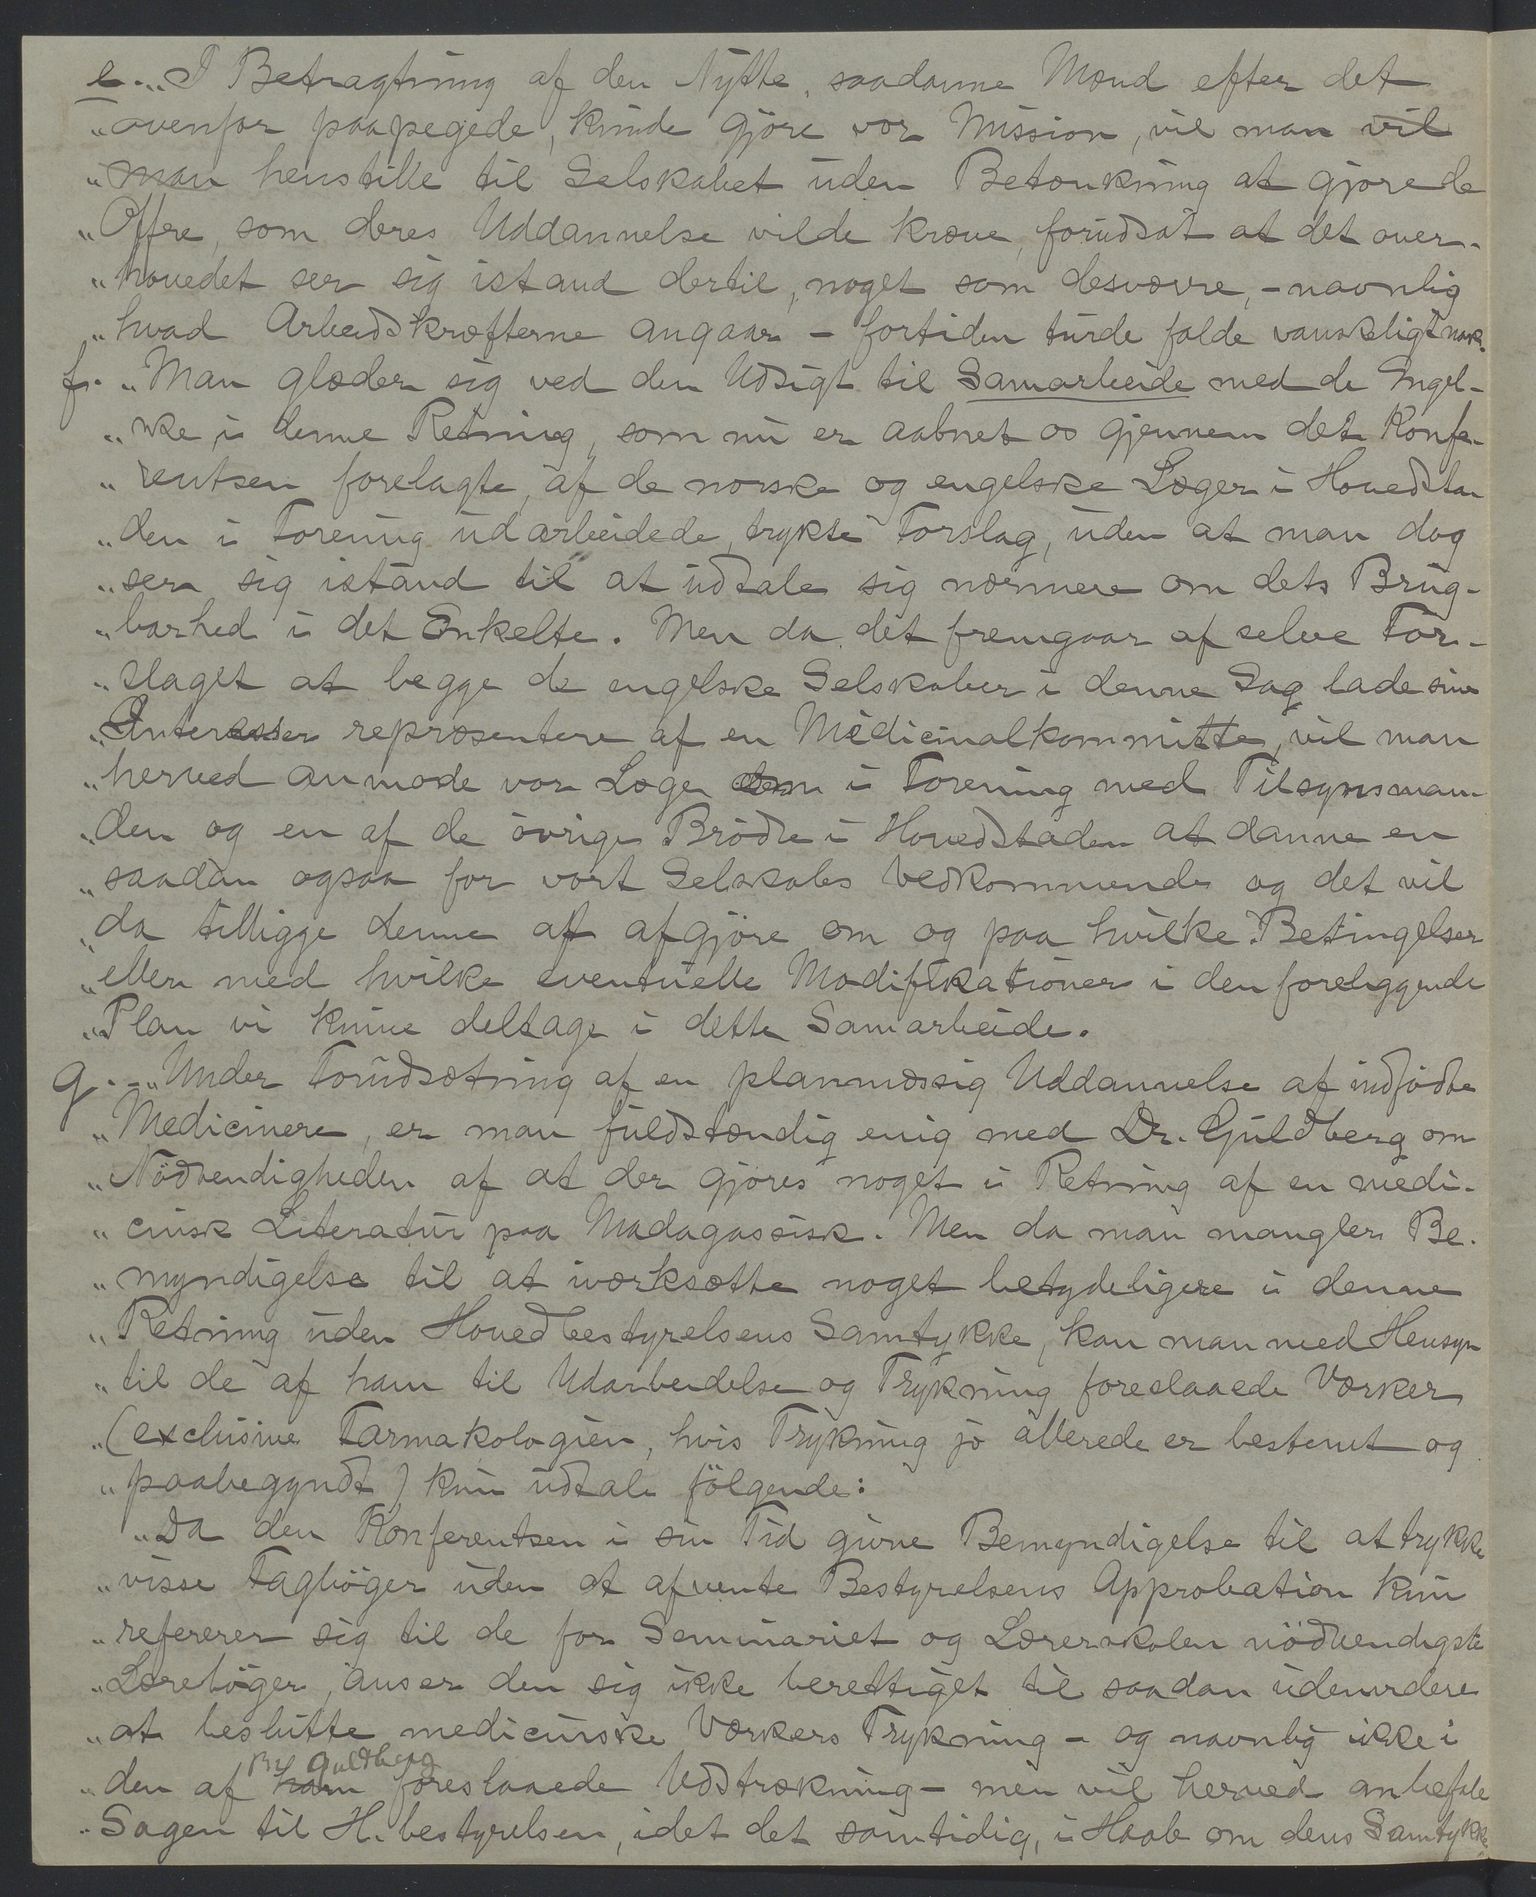 e. „I Betragtning af den Nytte, saadanne Mænd efter det
„ovenfor paapegede, kunde gjøre vor Mission, vil man vil
„man henstille til Selskabet uden Betænkning at gjøre de
„Offre, som deres Uddannelse vilde kræve, forudsat at det over-
„hovedet ser sig istand dertil, noget som desværre, - navnlig
„hvad Arbeidskræfterne angaar - fortiden turde falde vanskeligt nok.
f. „Man glæder sig ved den Udsigt til Samarbeide med de Engel-
„ske i denne Retning, som nu er aabnet os gjennem det Konfe-
„rentsen forelagte, af de norske og engelske Læger i Hovedsta
„den i Forening udarbeidede, trykte Forslag, uden at man dog
„ser sig istand til at udtale sig nærmere om dets Brug-
„barhed i det Enkelte. Men da det fremgaar af selve For-
„slaget at begge de engelske Selskaber i denne Sag lade sine
„Interesser repræsentere af en Medicinalkommitte, vil man
„herved anmode vor Læge dem i Forening med Tilsynsman
„den og en af de övrige Brödre i Hovedstaden at danne en
„saadan ogsaa for vort Selskabs Vedkommende og det vil
„da tilligge denne at afgjöre om og paa hvilke Betingelser
„eller med hvilke eventuelle Modifikationer i den foreliggende
„Plan vi kunne deltage i dette Samarbeide.
g. „Under Forudsætning af en planmæssig Uddannelse af indfödte
„Medicinere, er man fuldstændig enig med Dr. Guldberg om
„Nödvendigheden af at der gjöres noget i Retning af en medi-
„cinsk Literatur paa Madagassisk. Men da man mangler Be-
„myndigelse til at iværksætte noget betydeligere i denne
„Retning uden Hovedbestyrelsens Samtykke, kan man med Hensyn
„til de af ham til Udarbeidelse og Trykning foreslaaede Værker
„(exclusive Farmakologien, hvis Trykning jo allerede er bestemt og
„paabegyndt) kun udtale fölgende:
„Da den Konferentsen i sin Tid givne Bemyndigelse til at trykke
„visse Fagböger uden at afvente Bestyrelsens Approbation kun
„refererer sig til de for Seminariet og Lærerskolen nödvendigste
„Læreböger, anser den sig ikke berettiget til saadan udenvidere
„at beslutte medicinske Værkers Trykning - og navnlig ikke i
„den af ham Br. Guldberg foreslaaede Udstrækning - men vil herved anbefale
„Sagen til H. bestyrelsen, idet det samtidig, i Haab om dens Samtykke